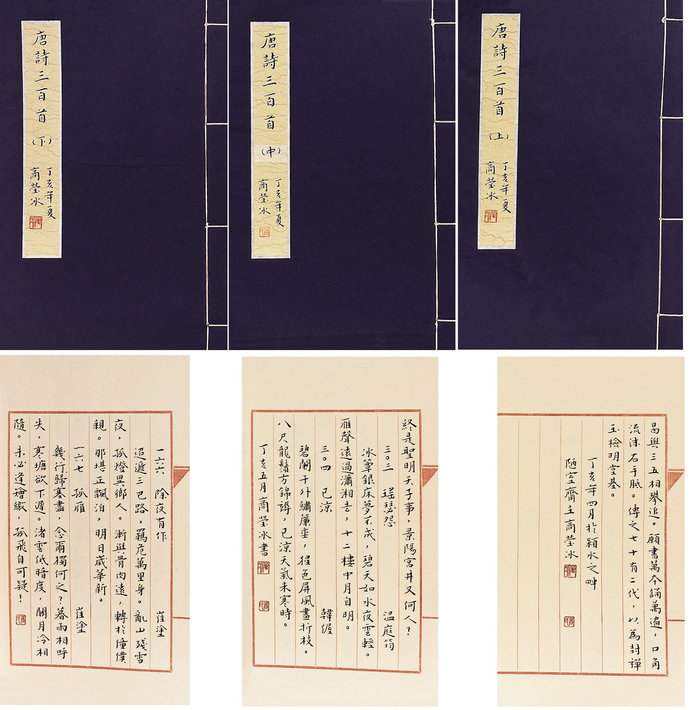 唐詩三百首(上)
丁亥年夏
商瑩冰
唐詩三百首(中)
丁亥年夏
商瑩冰
唐詩三百首(下)
丁亥年夏
商瑩冰
曷與三五相攀追。願書萬本誦萬遍,口角
流沫右手胝。傳之七十有二代,以為封禪
玉檢明堂基。
丁亥年四月於潁水之畔
陋室齋主商瑩冰
終是聖明天子事,景陽宮井又何人?
三〇三 瑤瑟怨 溫庭筠
冰簟銀床夢不成,碧天如水夜雲輕。
雁聲遠過瀟湘去,十二樓中月自明。
三〇四 已涼 韓偓
碧闌干外繡簾垂,猩色屏風畫折枝。
八尺龍鬚方錦褥,已涼天氣未寒時。
丁亥五月商瑩冰書
一六六 除夜有作 崔塗
迢遞三巴路,羈危萬里身。亂山殘雪
夜,孤燈異鄉人。漸與骨肉遠,轉於僮僕
親。那堪正飄泊,明日歲華新。
一六七 孤雁 崔塗
幾行歸塞盡,念爾獨何之?暮雨相呼
失,寒塘欲下遲。渚雲低暗度,關月冷相
隨。未必逢矰繳,孤飛自可疑!